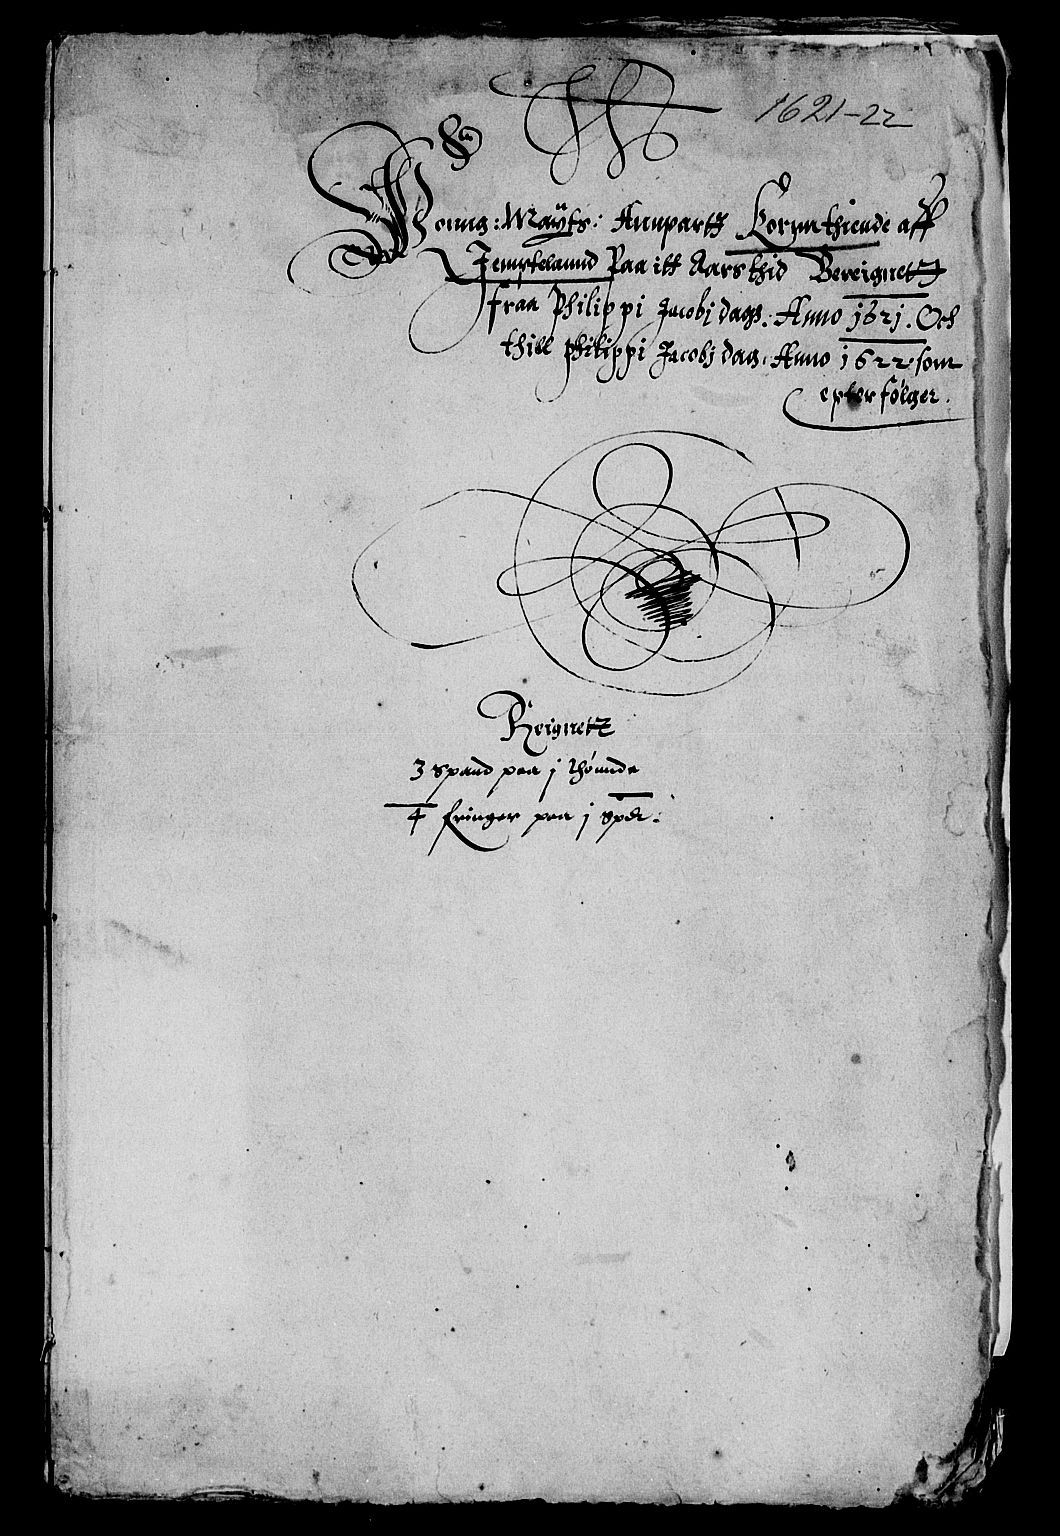 1621-22
Konng: Maÿts: Annpartz Kornnthiende aff
Jempteland Paa itt Aars thid Bereignetz
fraa Philippi Jacobj dags. Anno 1621. Och
thill philippi Jacobj dag. Anno 1622 som
epterfølger.
Reignetz
3 Spand paa j thønnde
4 fringer paa j Spdt: